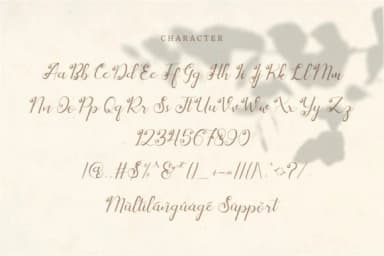 CHARACTER
Aa Bb Cc Dd Ee Ff Gg Hh Ii Jj Kk Ll Mm
Nn Oo Pp Qq Rr Ss Tt Uu Vv Ww Xx Yy Zz
1234567890
Multilanguage Support